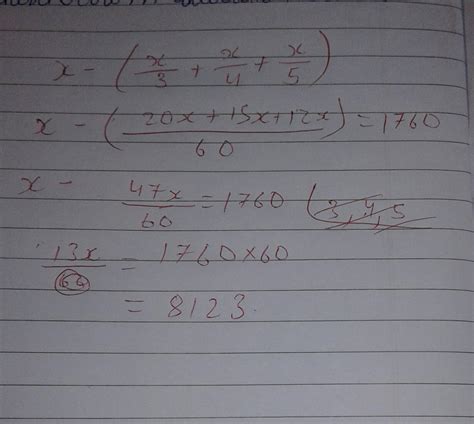 x - (x/3 + x/4 + x/5)
x - (20x+15x+12x/60) = 1760
x - 47x/60 = 1760 (3, 4, 5
13x/60 = 1760×60
= 8123.